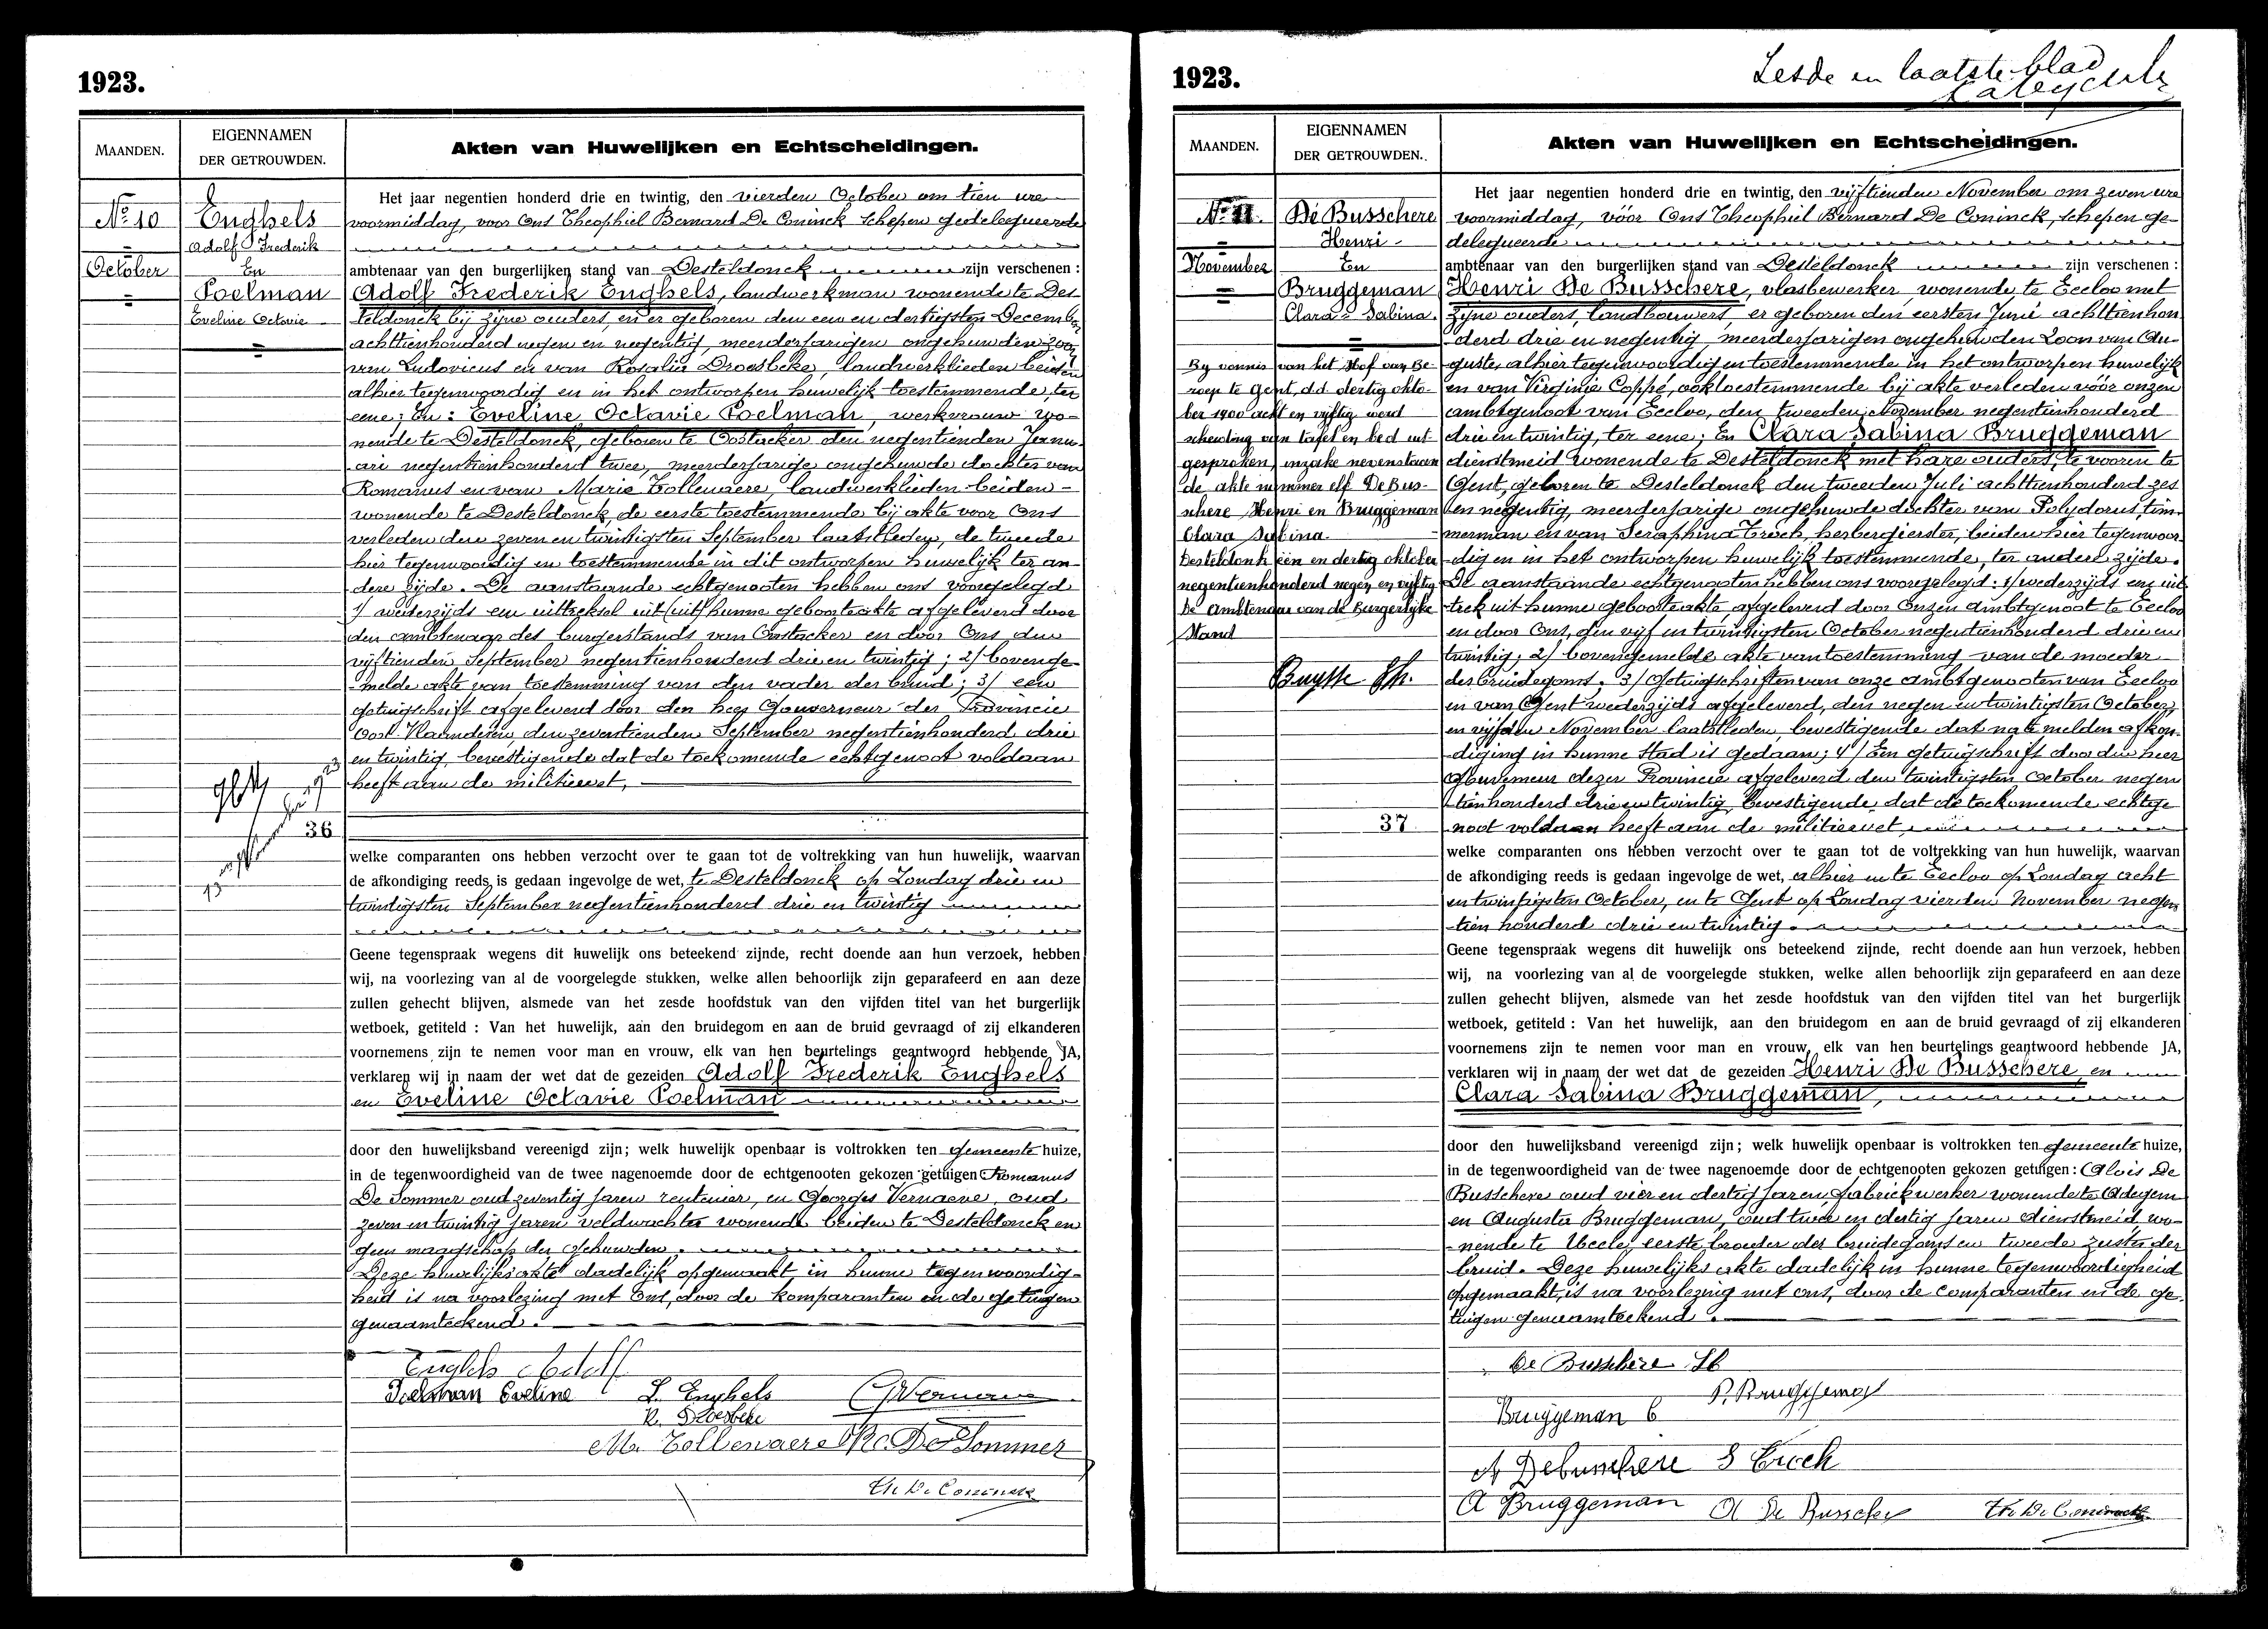 1923.
MAANDEN.
EIGENNAMEN
DER GETROUWDEN.
Akten van Huwelijken en Echtscheidingen.
No 10
October
Enghels
Adolf Frederik
En
Poelman
Eveline Octavie
36
Het jaar negentien honderd drie en twintig, den vierden October om tien ure
voormiddag, voor Ons Theophiel Bernard De Coninck schepen gedelegueerde
ambtenaar van den burgerlijken stand van Desteldonck zijn verschenen :
Adolf Frederik Enghels, landwerkman wonende te Des-
teldonck bij zijne ouders, en er geboren den een en dertigsten December
achttienhonderd negen en negentig, meerderjarigen ongehuwden zoon
van Ludovicus en van Rosalia Droesbeke, landwerklieden beiden
alhier tegenwoordig en in het ontworpen huwelijk toestemmende, ter
eene; En : Eveline Octavie Poelman, werkvrouw wo-
nende te Desteldonck, geboren te Oostacker den negentienden Janu-
ari negentienhonderd twee, meerderjarige ongehuwde dochter van
Romanus en van Marie Tollenaere, landwerklieden beiden
wonende te Desteldonck, de eerste toestemmende bij akte voor Ons
verleden den zeven en twintigsten September laatstleden, de tweede
hier tegenwoordig en toestemmende in dit ontworpen huwelijk ter an-
dere zijde. De aanstaande echtgenooten hebben ons voorgelegd
1/ wederzijds een uittreksel uit (uit) hunne geboorteakte afgeleverd door
den ambtenaar des burgerstands van Oostacker en door Ons den
vijftienden September negentienhonderd drie en twintig; 2/ bovenge-
melde akte van toestemming van den vader der bruid; 3/ een
getuigschrift afgeleverd door den heer Gouverneur der Provincie
Oost-Vlaanderen, den zeventienden September negentienhonderd drie
en twintig, bevestigende dat de toekomende echtgenoot voldaan
heeft aan de militiewet,
welke comparanten ons hebben verzocht over te gaan tot de voltrekking van hun huwelijk, waarvan
de afkondiging reeds is gedaan ingevolge de wet, te Desteldonck op Zondag drie en
twintigsten September negentienhonderd drie en twintig
Geene tegenspraak wegens dit huwelijk ons beteekend zijnde, recht doende aan hun verzoek, hebben
wij, na voorlezing van al de voorgelegde stukken, welke allen behoorlijk zijn geparafeerd en aan deze
zullen gehecht blijven, alsmede van het zesde hoofdstuk van den vijfden titel van het burgerlijk
wetboek, getiteld : Van het huwelijk, aan den bruidegom en aan de bruid gevraagd of zij elkanderen
voornemens zijn te nemen voor man en vrouw, elk van hen beurtelings geantwoord hebbende JA,
verklaren wij in naam der wet dat de gezeiden Adolf Frederik Enghels
en Eveline Octavie Poelman
door den huwelijksband vereenigd zijn; welk huwelijk openbaar is voltrokken ten gemeente huize,
in de tegenwoordigheid van de twee nagenoemde door de echtgenooten gekozen getuigen Romanus
De Sommer oud zeventig jaren rentenier, en Georges Vernaeve, oud
zeven en twintig jaren veldwachter wonende beiden te Desteldonck en
geen maagschap der gehuwden.
Deze huwelijksakte dadelijk opgemaakt in hunne tegenwoordig-
heid is na voorlezing met Ons, door de komparanten en de getuigen
genaamteekend.
Enghels Adolf
Poelman Eveline L. Enghels G Vernaeve
R. Droesbeke
M. Tollenaere R. De Sommer
Th. De Coninck
1923.
Zesde en laatste blad
MAANDEN.
EIGENNAMEN
DER GETROUWDEN.
Akten van Huwelijken en Echtscheidingen.
No 11.
November
De Busschere
Henri
En
Bruggeman
Clara Sabina.
By vonnis van het Hof van Be-
roep te Gent, d.d. dertig okto-
ber 1900 acht en vijftig werd
scheiding van tafel en bed uit-
gesproken, inzake nevenstaan
de akte nummer elf De Bus-
schere Henri en Bruggeman
Clara Sabina.
Desteldonk een en dertig oktober
negentienhonderd negen en vijftig
De Ambtenaar van de Burgerlijke
Stand
Buysse
37
Het jaar negentien honderd drie en twintig, den vijftienden November om zeven ure
voormiddag, vóór Ons Theophiel Bernard De Coninck, schepen ge-
delegueerde
ambtenaar van den burgerlijken stand van Desteldonck zijn verschenen :
Henri De Busschere, vlasbewerker, wonende te Eecloo met
zijne ouders, landbouwers, er geboren den eersten Juni achttienhon
derd drie en negentig, meerderjarigen ongehuwden Zoon van Au-
guste, alhier tegenwoordig en toestemmende in het ontworpen huwelijk
en van Virginie Coppé, ook toestemmende bij akte verleden vóór onzen
ambtgenoot van Eecloo, den tweeden November negentienhonderd
drie en twintig, ter eene; En Clara Sabina Bruggeman
dienstmeid wonende te Desteldonck met hare ouders, te vooren te
Gent, geboren te Desteldonck den tweeden Juli achttienhonderd zes
en negentig, meerderjarige ongehuwde dochter van Polydorus, tim-
merman en van Seraphina Troch, herbergierster, beiden hier tegenwoor-
dig en in het ontworpen huwelijk toestemmende, ter andere zijde.
De aanstaande echtgenooten hebben ons voorgelegd : 1/ wederzijds een uit-
trek uit hunne geboorteakte afgeleverd door Onzen ambtgenoot te Eecloo
en door Ons, den vijf en twintigsten October negentienhonderd drie en
twintig; 2/ bovengemelde akte van toestemming van de moeder
der bruidegoms; 3/ Getuigschriften van onze ambtgenooten van Eecloo
en van Gent wederzijds afgeleverd, den negen en twintigsten October,
en vijfden November laatstleden, bevestigende dat na te melden afkon-
diging in hunne stad is gedaan; 4/ Een getuigschrift door den heer
Gouverneur dezer Provincie afgeleverd den twintigsten October negen
tienhonderd drie en twintig, bevestigende dat de toekomende echtge
noot voldaan heeft aan de militiewet
welke comparanten ons hebben verzocht over te gaan tot de voltrekking van hun huwelijk, waarvan
de afkondiging reeds is gedaan ingevolge de wet, alhier en te Eecloo op Zondag acht
en twintigsten October, en te Gent op Zondag vierden November negen
tien honderd drie en twintig.
Geene tegenspraak wegens dit huwelijk ons beteekend zijnde, recht doende aan hun verzoek, hebben
wij, na voorlezing van al de voorgelegde stukken, welke allen behoorlijk zijn geparafeerd en aan deze
zullen gehecht blijven, alsmede van het zesde hoofdstuk van den vijfden titel van het burgerlijk
wetboek, getiteld : Van het huwelijk, aan den bruidegom en aan de bruid gevraagd of zij elkanderen
voornemens zijn te nemen voor man en vrouw, elk van hen beurtelings geantwoord hebbende JA,
verklaren wij in naam der wet dat de gezeiden Henri De Busschere, en
Clara Sabina Bruggeman,
door den huwelijksband vereenigd zijn; welk huwelijk openbaar is voltrokken ten gemeente huize,
in de tegenwoordigheid van de twee nagenoemde door de echtgenooten gekozen getuigen : Aloïs De
Busschere oud vier en dertig jaren fabriekwerker wonende te Adegem
en Augusta Bruggeman, oud twee en dertig jaren dienstmeid wo-
nende te Uccle, eerste broeder der bruidegoms en tweede zuster der
bruid. Deze huwelijksakte dadelijk in hunne tegenwoordigheid
opgemaakt, is na voorlezing met ons, door de comparanten en de ge-
tuigen genaamteekend.
De Busschere H
P. Bruggeman
Bruggeman C
A Debusschere S Troch
A Bruggeman A De Busschere Th. De Coninck